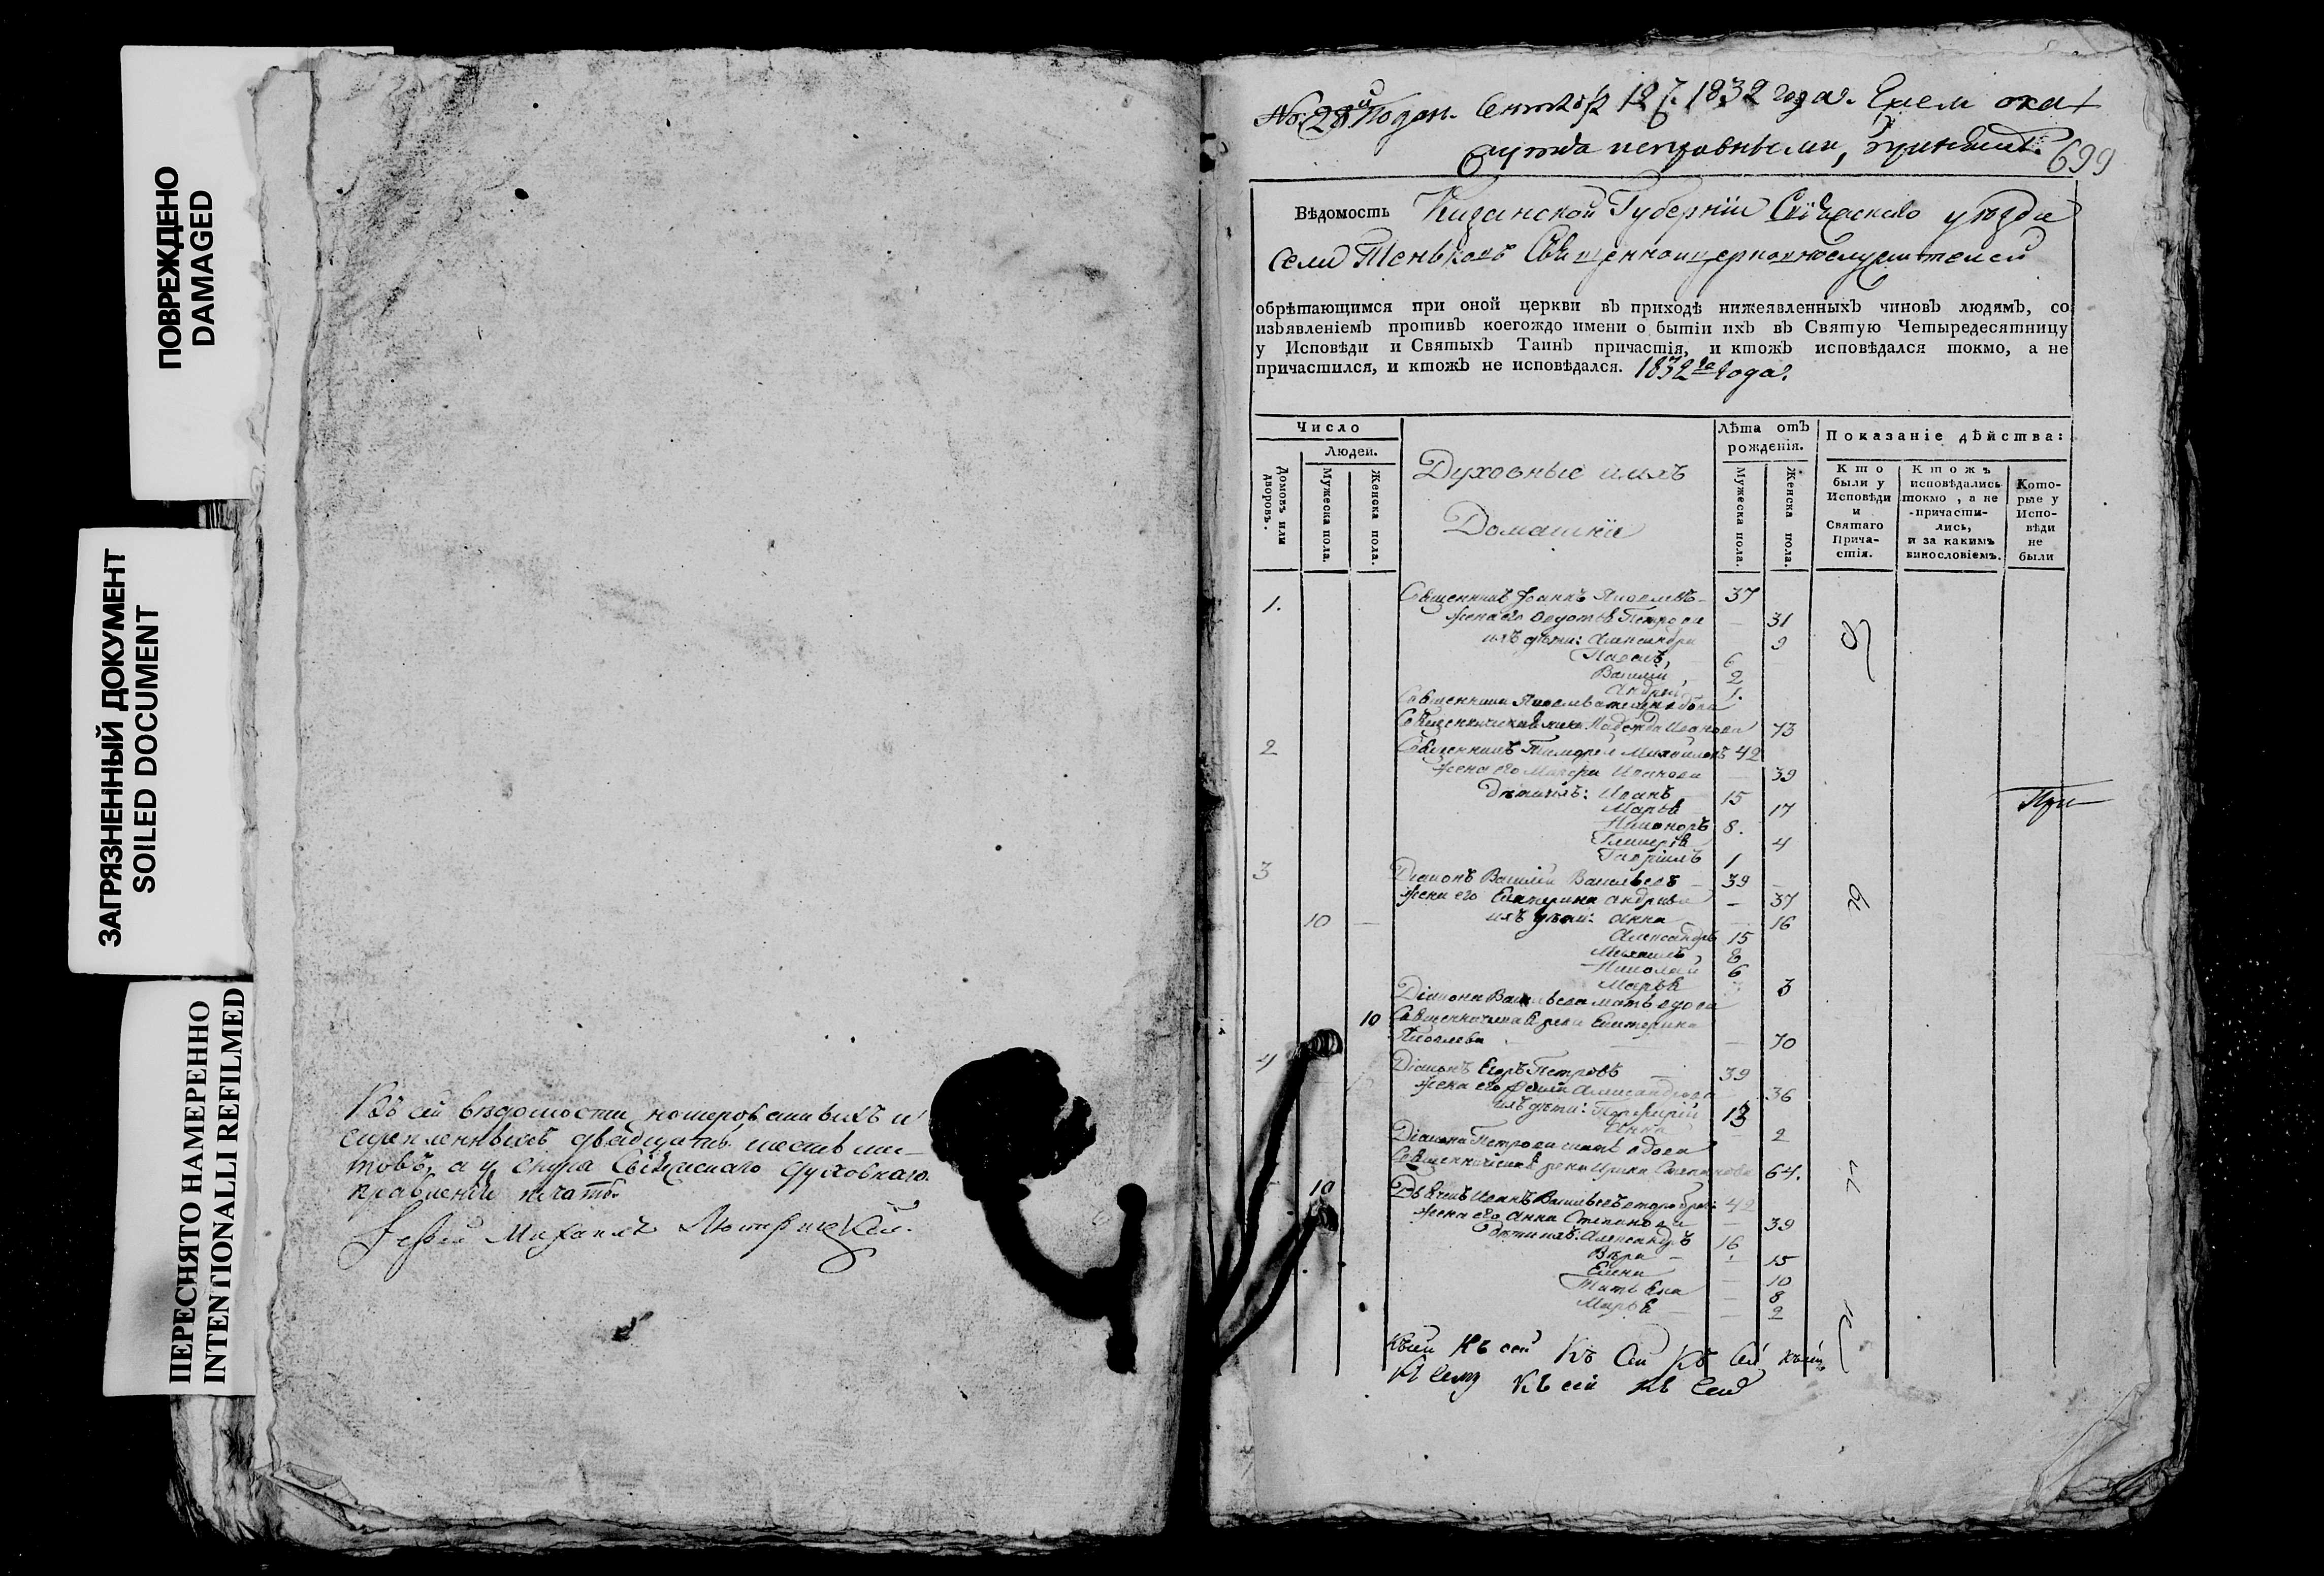 ПОВРЕЖДЕНО
DAMAGED
ЗАГРЯЗНЕННЫЙ ДОКУМЕНТ
SOILED DOCUMENT
ПЕРЕСНЯТО НАМЕРЕННО
INTENTIONALLI REFILMED
Въ сей вѣдомости номеров
скрепленныхъ двадцать шесть лис-
товъ, а у снура Свіяжскаго духовнаго
правленія печать.
Іерей Михаилъ
№ 28й Подан. Сентябр 12 1832 года.
исправными,
699
Вѣдомость Казанской Губерніи Свіяжскаго уѣзда
села Теньковъ Священноцерковнослужителей
обрѣтающимся при оной церкви въ приходѣ нижеявленныхъ чиновъ людямъ, со
изъявленіемъ противъ коегождо имени о бытіи ихъ въ Святую Четыредесятницу
у Исповѣди и Святыхъ Таинъ причастія, и ктожъ исповѣдался токмо, а не
причастился, и ктожъ не исповѣдался. 1832го года.
Число
Людей.
Домовъ или дворовъ.
Мужеска пола.
Женска пола.
Духовные и ихъ
Домашніи
Лѣта отъ рожденія.
Мужеска пола.
Женска пола.
Показаніе дѣйства:
Кто были у Исповѣди и Святаго Причастія.
Ктожъ исповѣдались токмо, а не причастились, и за какимъ винословіемъ.
Которые у Исповѣди не были
1. Священникъ Іоаннъ Яковлевъ 37
жена его Петрова 31
ихъ дѣти: Александра 9
Павелъ, 6
Василій, 2
Андрей 1.
Священника Яковлева мать вдова
Священническая жена Надежда Иванова 73
2 Священникъ Тимофей Михайловъ 42
жена его Марфа Иванова 39
Дѣти ихъ: Иванъ 15
Марья 17
Никоноръ 8.
Гликерія 4
Гавріилъ 1
При
3 Діаконъ Василій Васильевъ 39
жена его Екатерина Андреева 37
10 ихъ дѣти: Анна 16
Александръ 15
Михаилъ, 8
Николай 6
Марья 3
Діакона Васильева мать вдова
10 Священническая жена Екатерина
Яковлева 70
4 Діаконъ Егоръ Петровъ 39
жена его Александрова 36
ихъ дѣти: Порфирій 13
Анна 2
Діакона Петрова мать вдова
Священническая жена Ирина Степанова 64.
10 Дьячекъ Иванъ Васильевъ 42
жена его Анна Степанова 39
Дѣти ихъ: Александръ 16
Вѣра 15
Елена 10
Татьяна 8
Марья 2
Къ сей Къ сей Къ Сей Къ Сей къ сей
Къ сему Къ сей Къ Сей